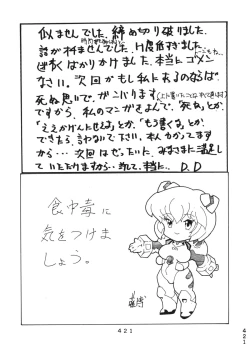 似ませんでした、締め切り破りました、
話が木ませんでした、H度危すぎました、
ばかりかけました、本当にゴメン
なさい。次回がもし私にあるのならば
死ぬ思いで、ガンバります
ですから、私のマンガをよんで、「死ね」とか
「ええかげんにせえよ」とか、「もう書くな」とか、
できたら、言わないで下さい。本人わかってます
から…次回はぜったいに、みなさまに満足し
ていただけますから…それで、本当に… D.D
食中毒に
気をつけま
しょう。
421
421